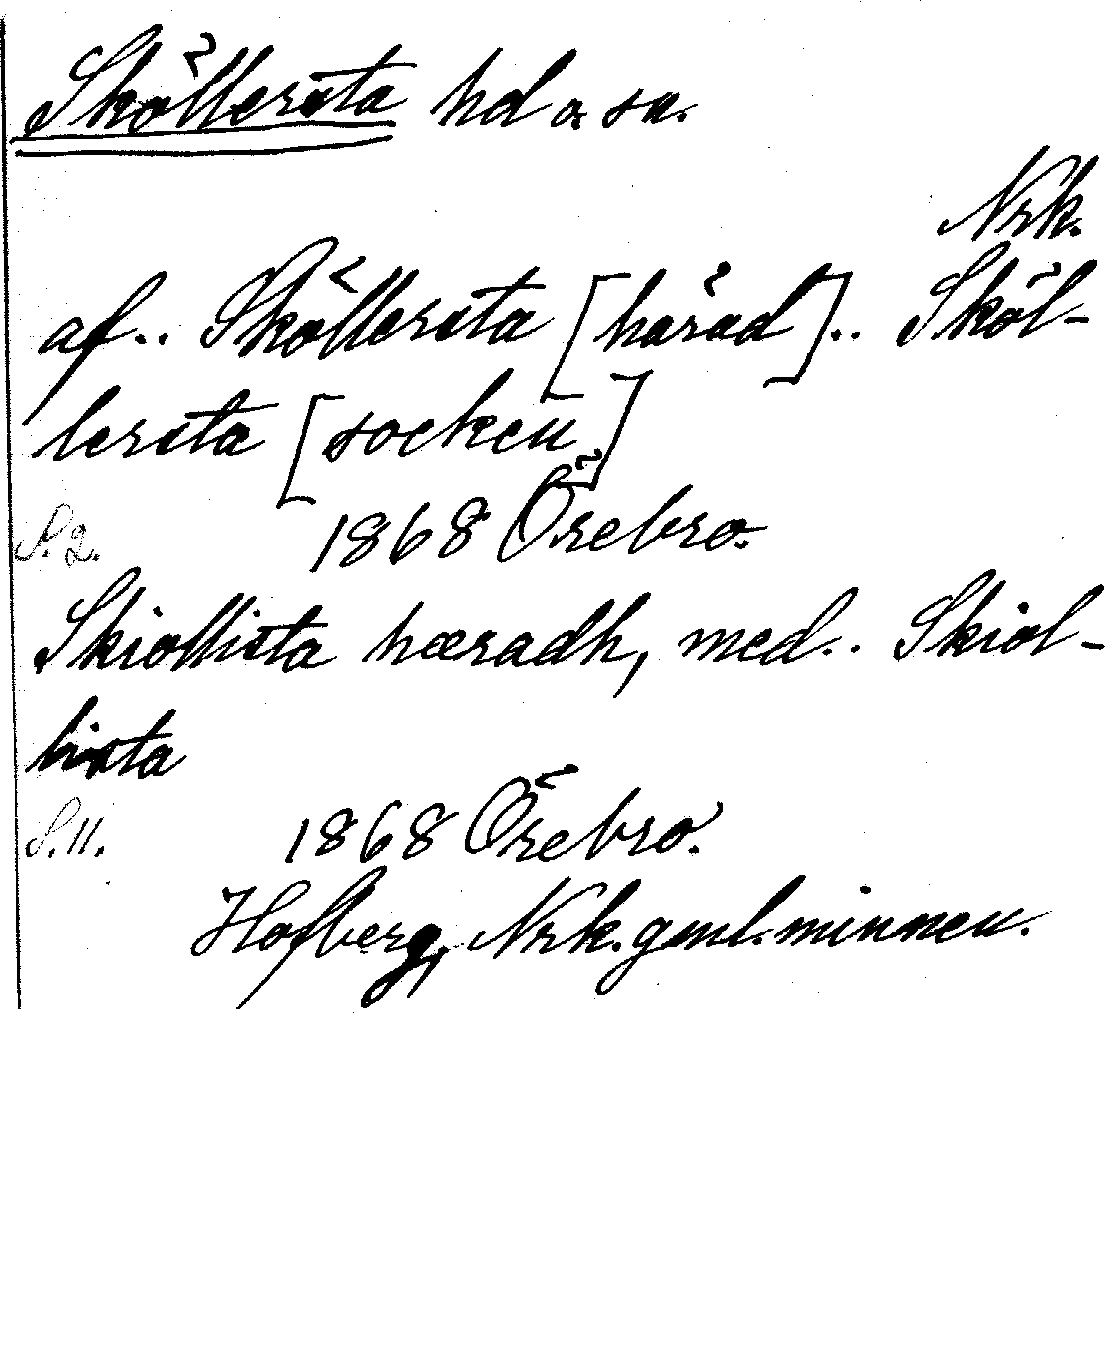 Sköllersta hd o. sn.
Nrk.
af.. Sköllersta [härad].. Sköl-
lersta [socken]
S. 2. 1868 Örebro.
Skiollista hæradh, med.. Skiol-
lista
S. 11. 1868 Örebro.
Hofberg, Nrk. gml. minnen.